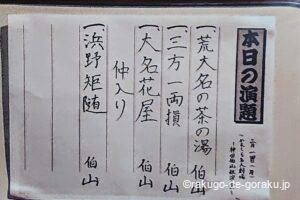 本日の演題
一、荒大名の茶の湯 伯山
一、三方一両損 伯山
一、大名花屋 伯山
仲入り
一、浜野矩随 伯山
©rakugo-de-goraku.jp